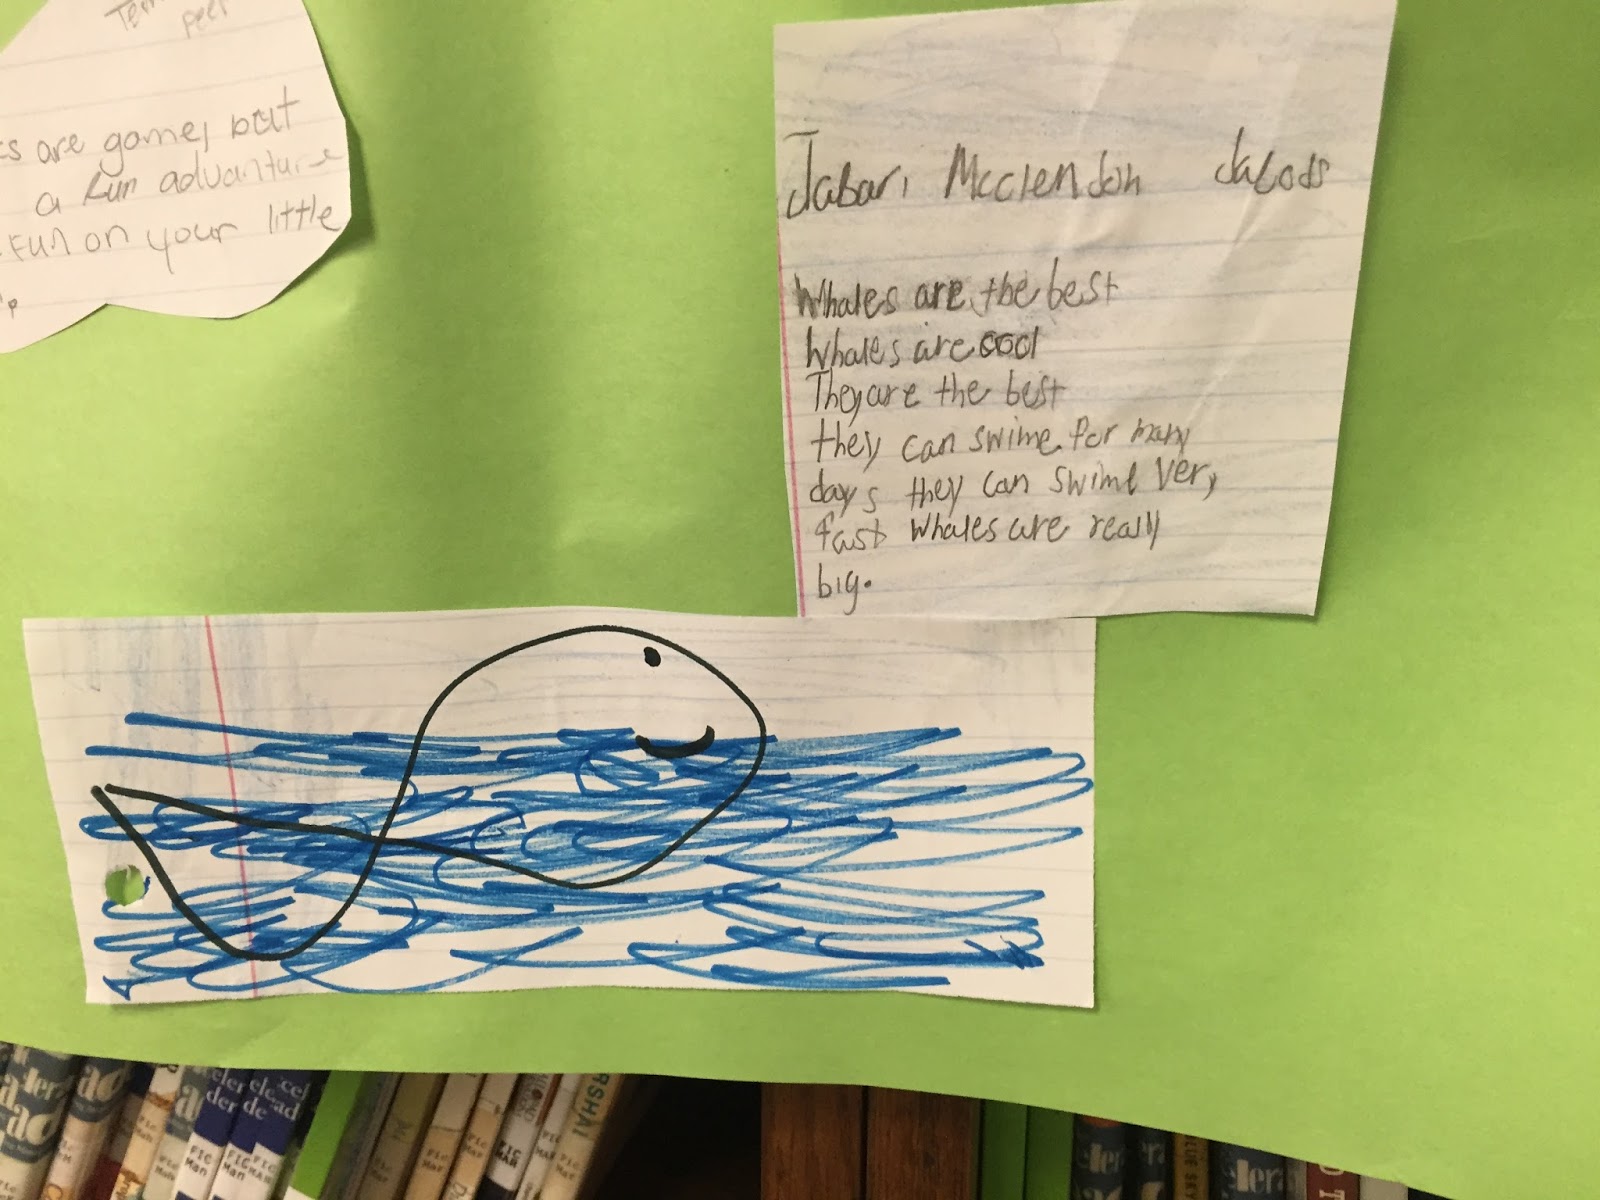 peer
are game, but
a fun advanture
Fun on your little
Jabari Mcclendon
Whales are the best
Whales are cool
They are the best
they can swime for many
days they can swime very
fast Whales are really
big.
RSHAL
FIC
Man
FIC
Man
FIC
MAR